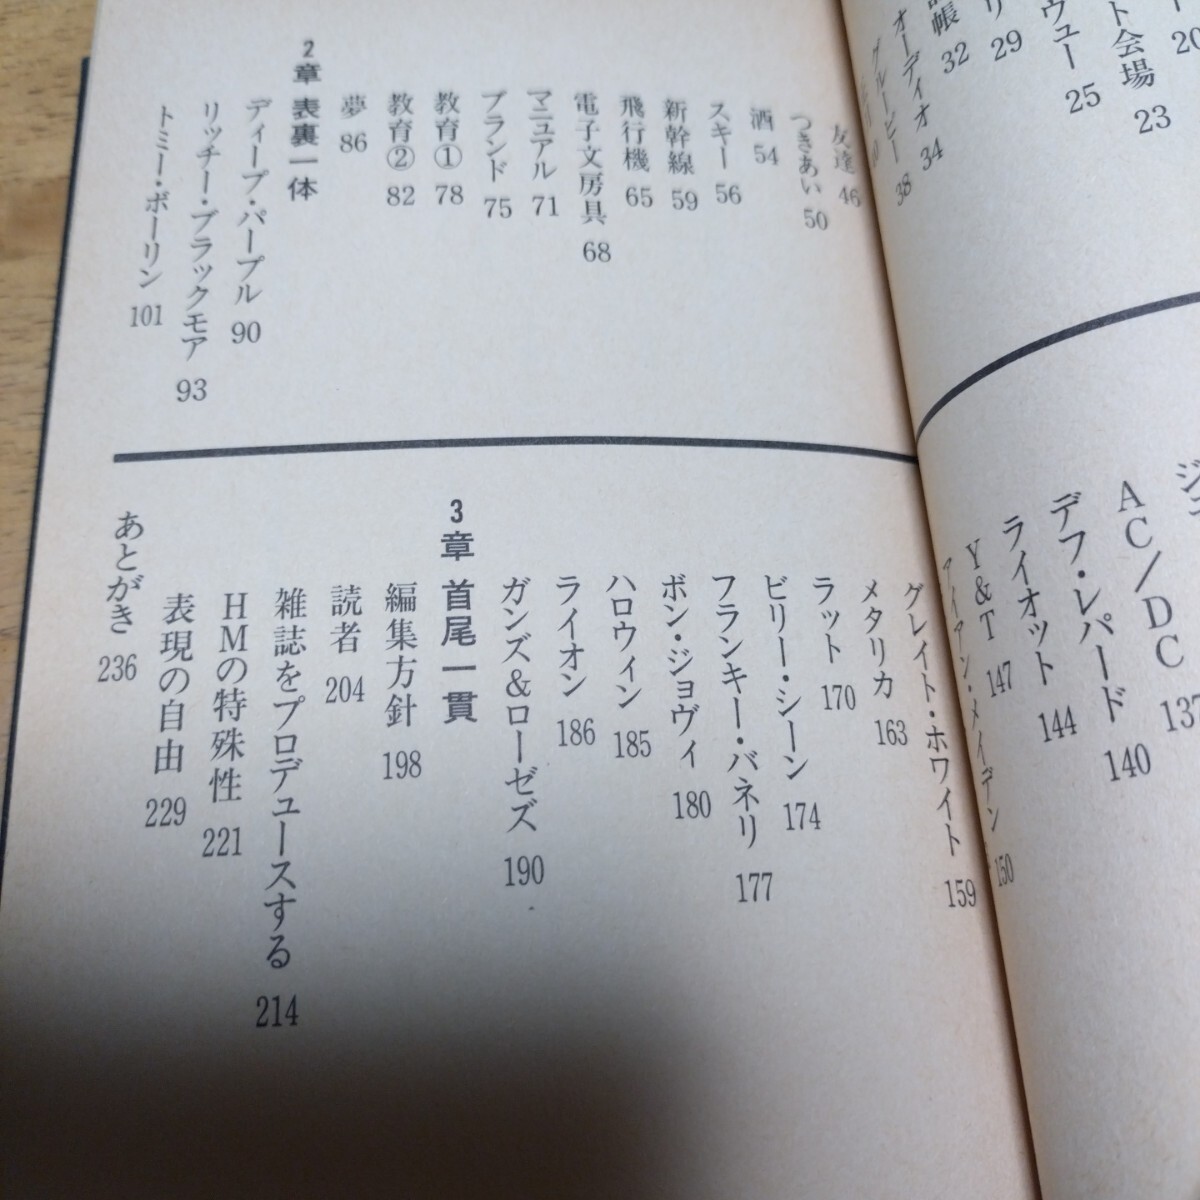 ト会場 23
ウュー 25
リ 29
帳 32
オーディオ 34
グルーピー 38
友達 46
つきあい 50
酒 54
スキー 56
新幹線 59
飛行機 65
電子文房具 68
マニュアル 71
ブランド 75
教育① 78
教育② 82
夢 86
2章 表裏一体
ディープ・パープル 90
リッチー・ブラックモア 93
トミー・ボーリン 101
AC/DC 137
デフ・レパード 140
ライオット 144
Y&T 147
アイアン・メイデン 150
グレイト・ホワイト 159
メタリカ 163
ラット 170
ビリー・シーン 174
フランキー・バネリ 177
ボン・ジョヴィ 180
ハロウィン 185
ライオン 186
ガンズ&ローゼズ 190
3章 首尾一貫
編集方針 198
読者 204
雑誌をプロデュースする 214
HMの特殊性 221
表現の自由 229
あとがき 236